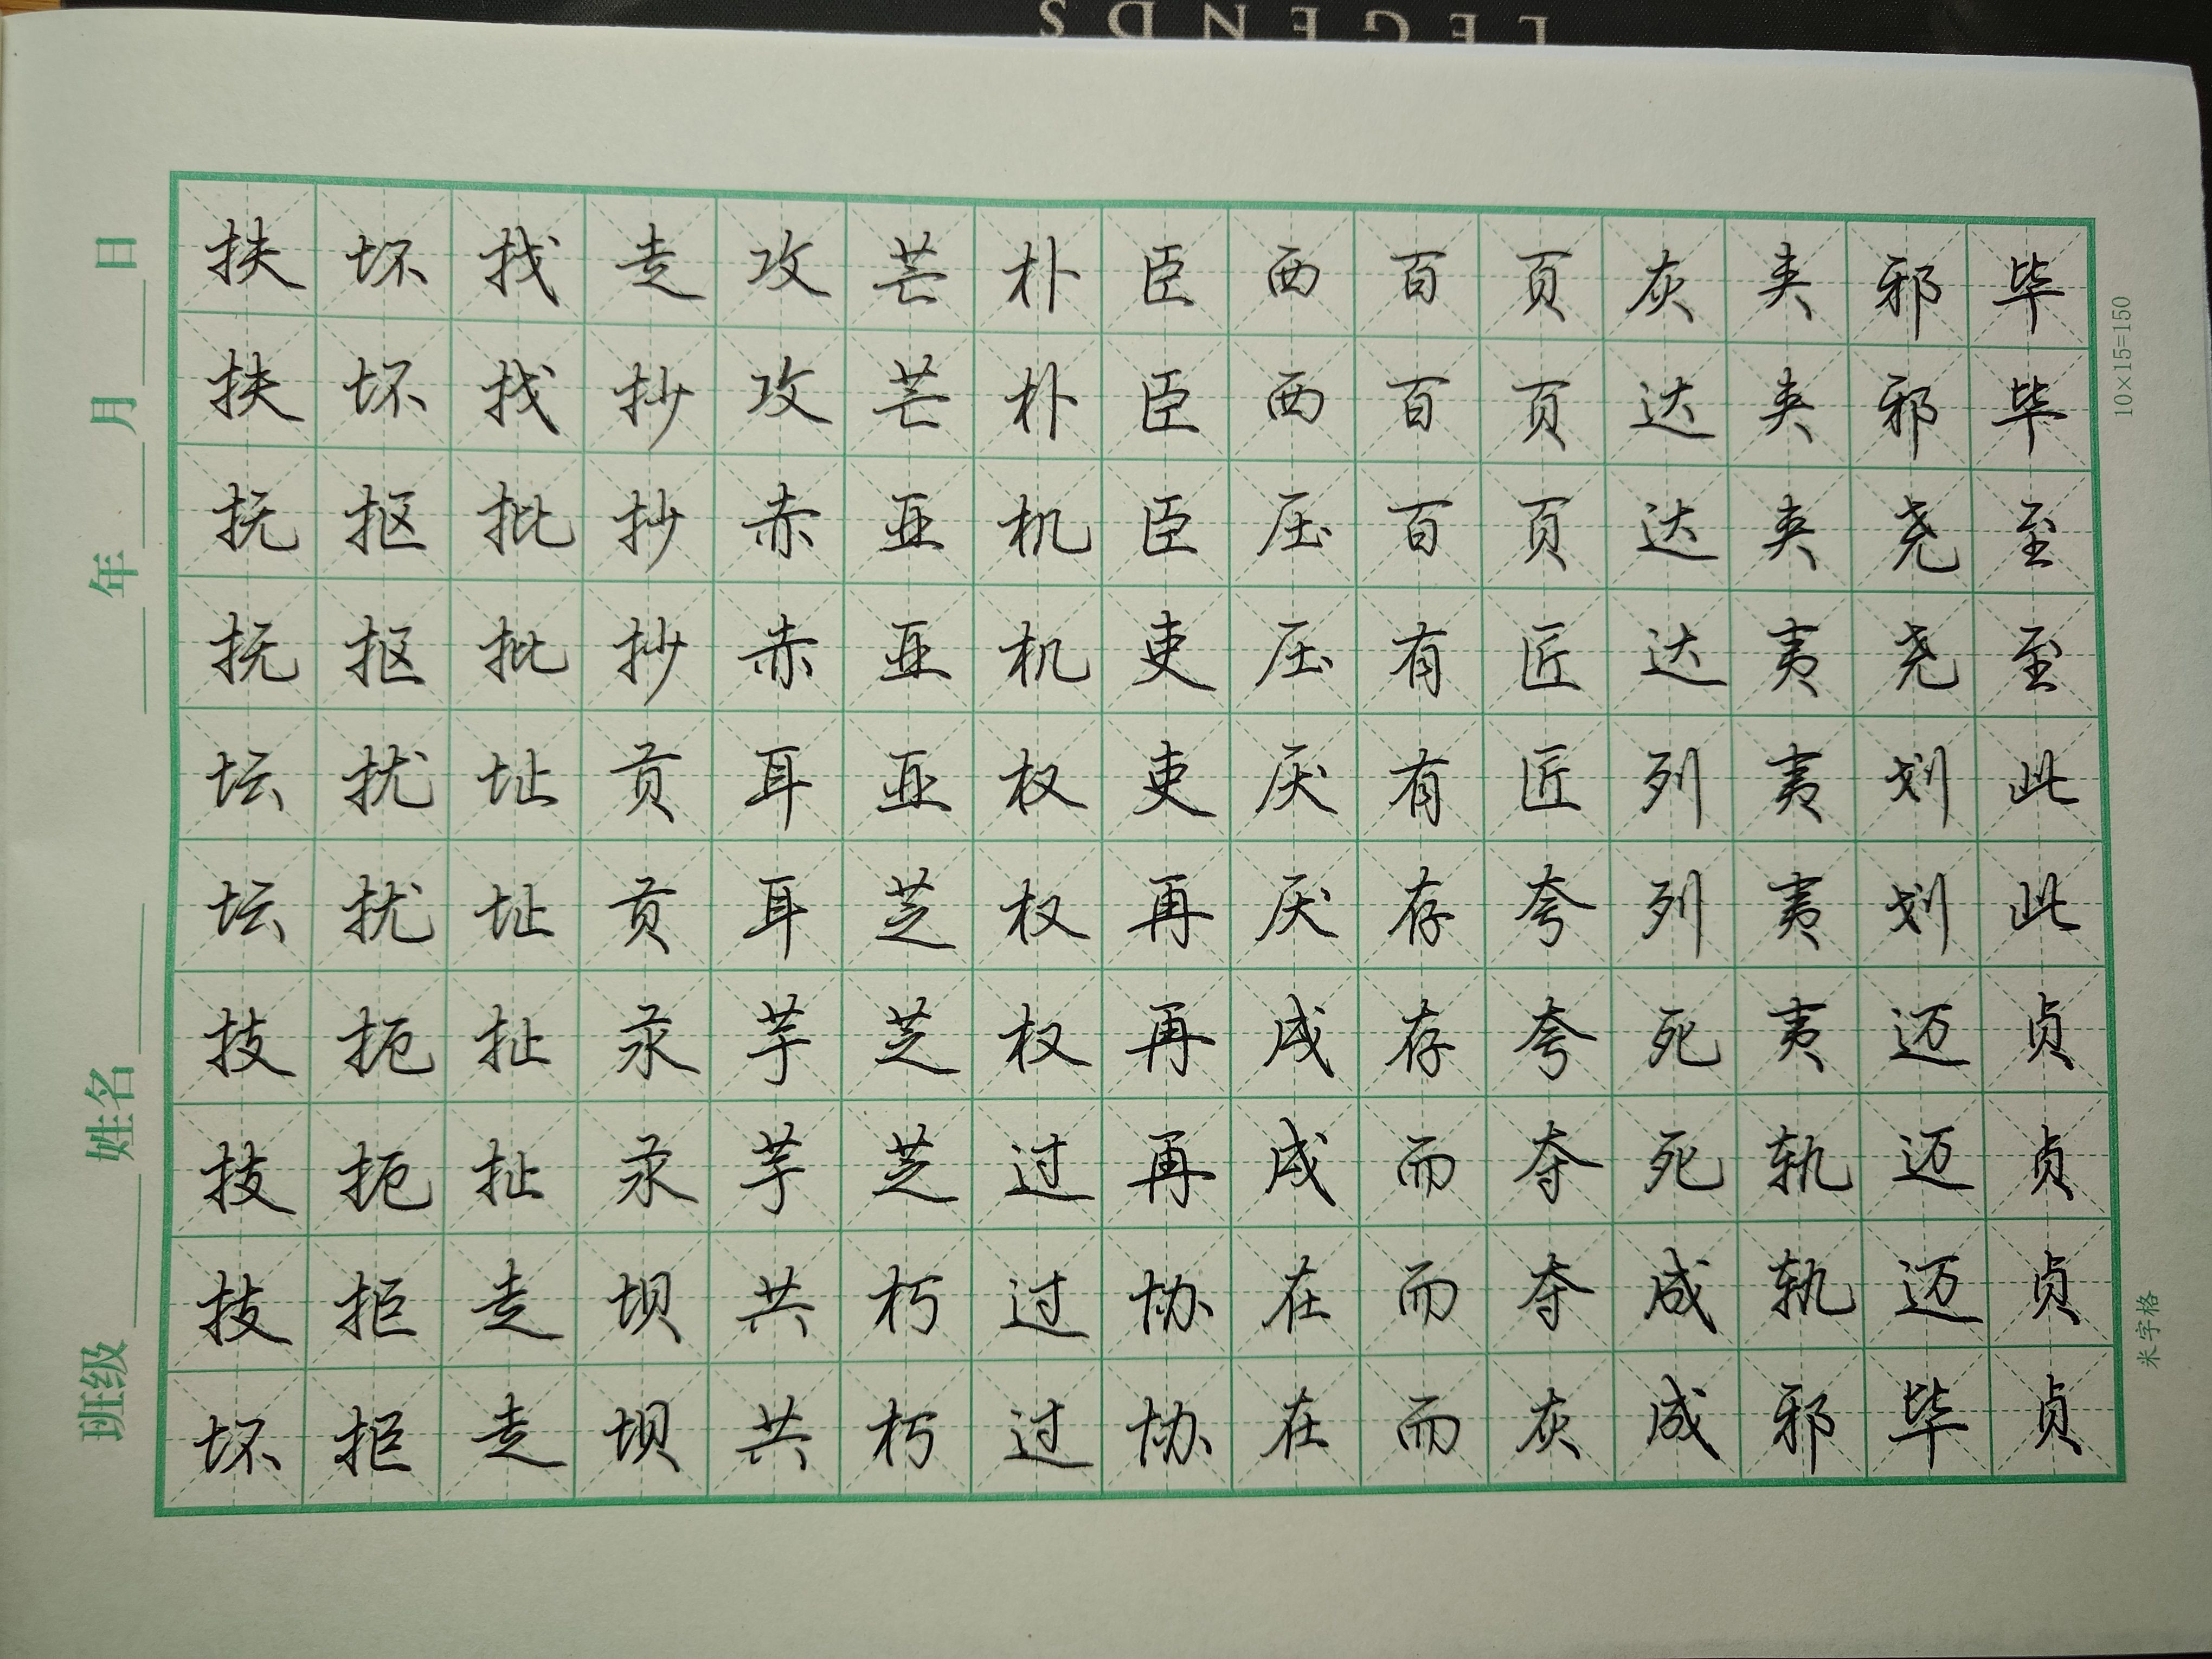 LEGENDS
班级 姓名 年 月 日
扶坏找走攻芒朴臣西百页灰夹邪毕
扶坏找抄攻芒朴臣西百页达夹邪毕
抚抠批抄赤亚机臣压百页达夹尧至
抚抠批抄赤亚机吏压有匠达夷尧至
坛扰址贡耳亚权吏厌有匠列夷划此
坛扰址贡耳芝权再厌存夸列夷划此
技扼扯汞芋芝权再戌存夸死夷迈贞
技扼扯汞芋芝过再戌而夺死轨迈贞
技拒走坝共朽过协在而夺成轨迈贞
坏拒走坝共朽过协在而灰成邪毕贞
10×15=150
米字格